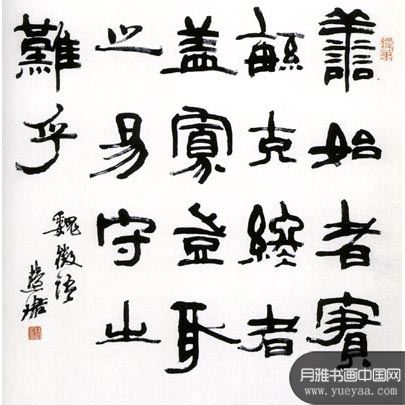 善始者實
繁克終者
蓋寡豈取
之易守之
難乎
魏徵語
月雅书画中国网
www.yueyaa.com